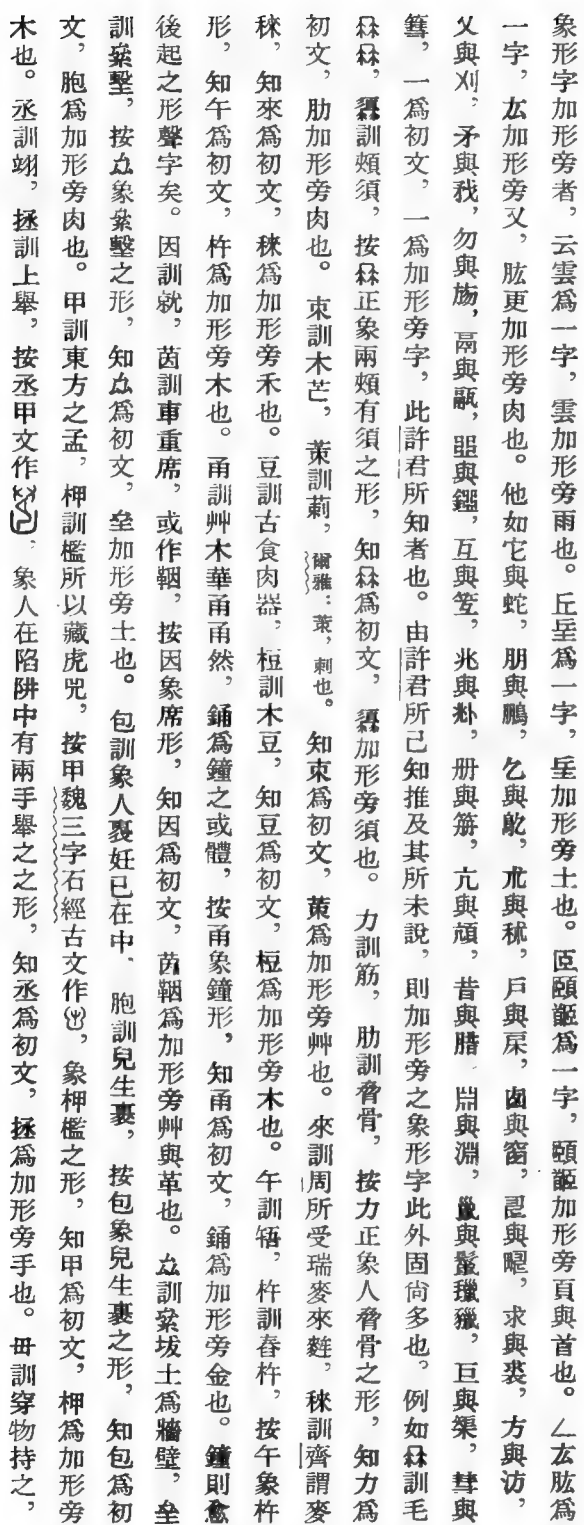 象形字加形旁者，云雲爲一字，雲加形旁雨也。丘坵爲一字，坵加形旁土也。𦣞頤𩠡爲一字，頤𩠡加形旁頁與首也。𠃋厷肱爲
一字，厷加形旁又，肱更加形旁肉也。他如它與蛇，朋與鵬，乞與鳦，朮與秫，戶與㦿，囪與窗，𠃬與疇，求與裘，方與汸，
乂與刈，矛與𢦧，勿與㫍，鬲與䰛，𦣠與鑷，互與笠，兆與𠧞，册與笧，亢與頏，昔與腊，𣶒與淵，巤與鬣㺢獵，巨與榘，彗與
篲，一爲初文，一爲加形旁字，此許君所知者也。由許君所已知推及其所未說，則加形旁之象形字此外固尙多也。例如冄訓毛
冄冄，𩓾訓頰須，按冄正象兩頰有須之形，知冄爲初文，𩓾加形旁須也。力訓筋，肋訓脅骨，按力正象人脅骨之形，知力爲
初文，肋加形旁肉也。朿訓木芒，茦訓莿，爾雅：茦，刺也。知朿爲初文，茦爲加形旁艸也。來訓周所受瑞麥來麰，秾訓齊謂麥
秾，知來爲初文，秾爲加形旁禾也。豆訓古食肉器，梪訓木豆，知豆爲初文，梪爲加形旁木也。午訓啎，杵訓舂杵，按午象杵
形，知午爲初文，杵爲加形旁木也。甬訓艸木華甬甬然，銿爲鐘之或體，按甬象鐘形，知甬爲初文，銿爲加形旁金也。鐘則愈
後起之形聲字矣。因訓就，茵訓車重席，或作鞇，按因象席形，知因爲初文，茵鞇爲加形旁艸與革也。厽訓絫坺土爲牆壁，垒
訓絫墼，按厽象絫墼之形，知厽爲初文，垒加形旁土也。包訓象人裹妊已在中，胞訓兒生裹，按包象兒生裹之形，知包爲初
文，胞爲加形旁肉也。甲訓東方之孟，柙訓檻所以藏虎兕，按甲魏三字石經古文作，象柙檻之形，知甲爲初文，柙爲加形旁
木也。丞訓翊，拯訓上舉，按丞甲文作，象人在陷阱中有兩手舉之之形，知丞爲初文，拯爲加形旁手也。毌訓穿物持之，